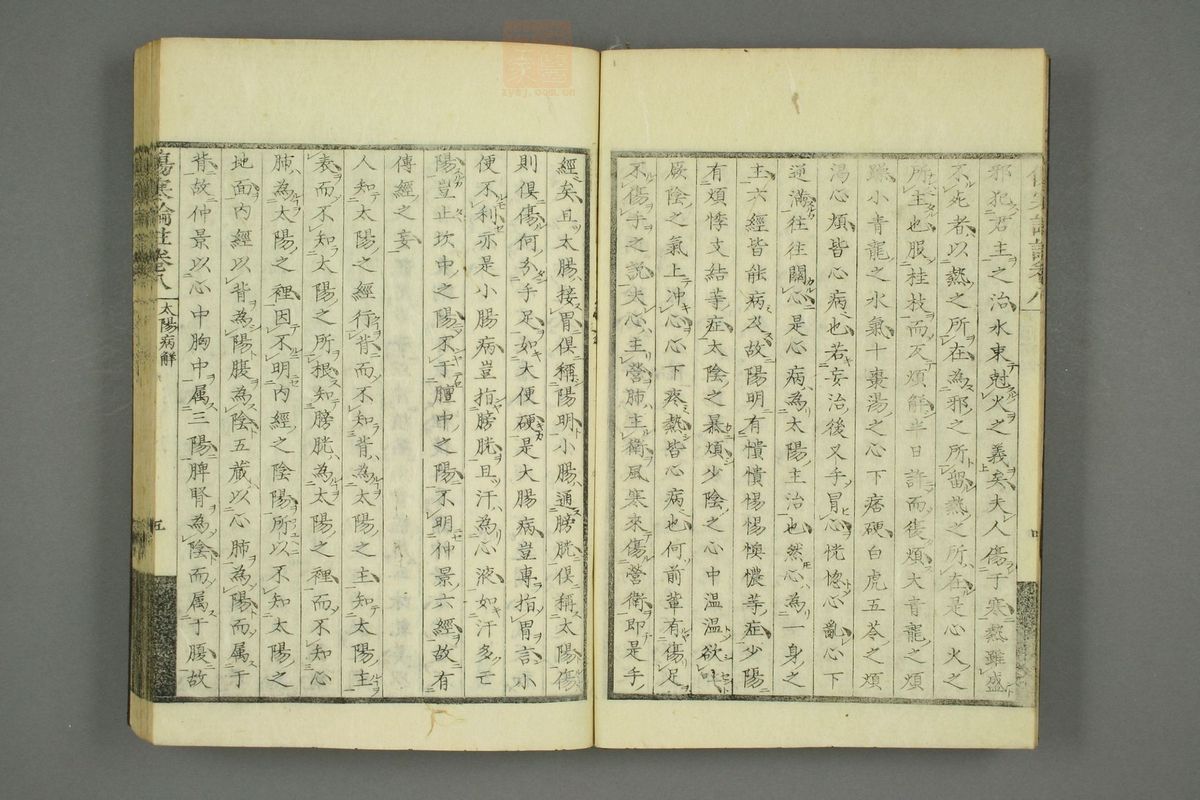 邪犯君主之治水來尅火之義矣夫人傷于寒熱雖盛
不死者以熱之所在為邪之所留熱之所在是心火之
所主也服桂枝而反煩解半日許而復煩大青龍之煩
躁小青龍之水氣十棗湯之心下痞硬白虎五苓之煩
渴心煩皆心病也若妄治後叉手冒心恍惚心亂心下
逆滿往往關心是心病為太陽主治也然心為一身之
主六經皆能病及故陽明有憒憒惕惕懊憹等症少陽
有煩悸支結等症太陰之暴煩少陰之心中温温欲吐
厥陰之氣上冲心心下疼熱皆心病也何前輩有傷足
不傷手之說夫心主營肺主衛風寒來傷營衛即是手
經矣且大腸接胃俱稱陽明小腸通膀胱俱稱太陽傷
則俱傷何分手足如大便硬是大腸病豈專指胃言小
便不利亦是小腸病豈指膀胱且汗為心液如汗多亡
陽豈止坎中之陽不于膻中之陽不明仲景六經故有
傳經之妄
人知太陽之經行背而不知背為太陽之主知太陽主
表而不知太陽之所根知膀胱為太陽之裡而不知心
肺為太陽之裡因不明内經之陰陽所以不知太陽之
地面内經以背為陽腹為陰五藏以心肺為陽而属于
背故仲景以心中胸中属三陽脾腎為陰而属于腹故
傷寒論註卷八
太陽病解
五